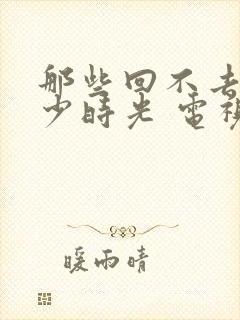 那些回不去
少時光 電視
暖雨晴